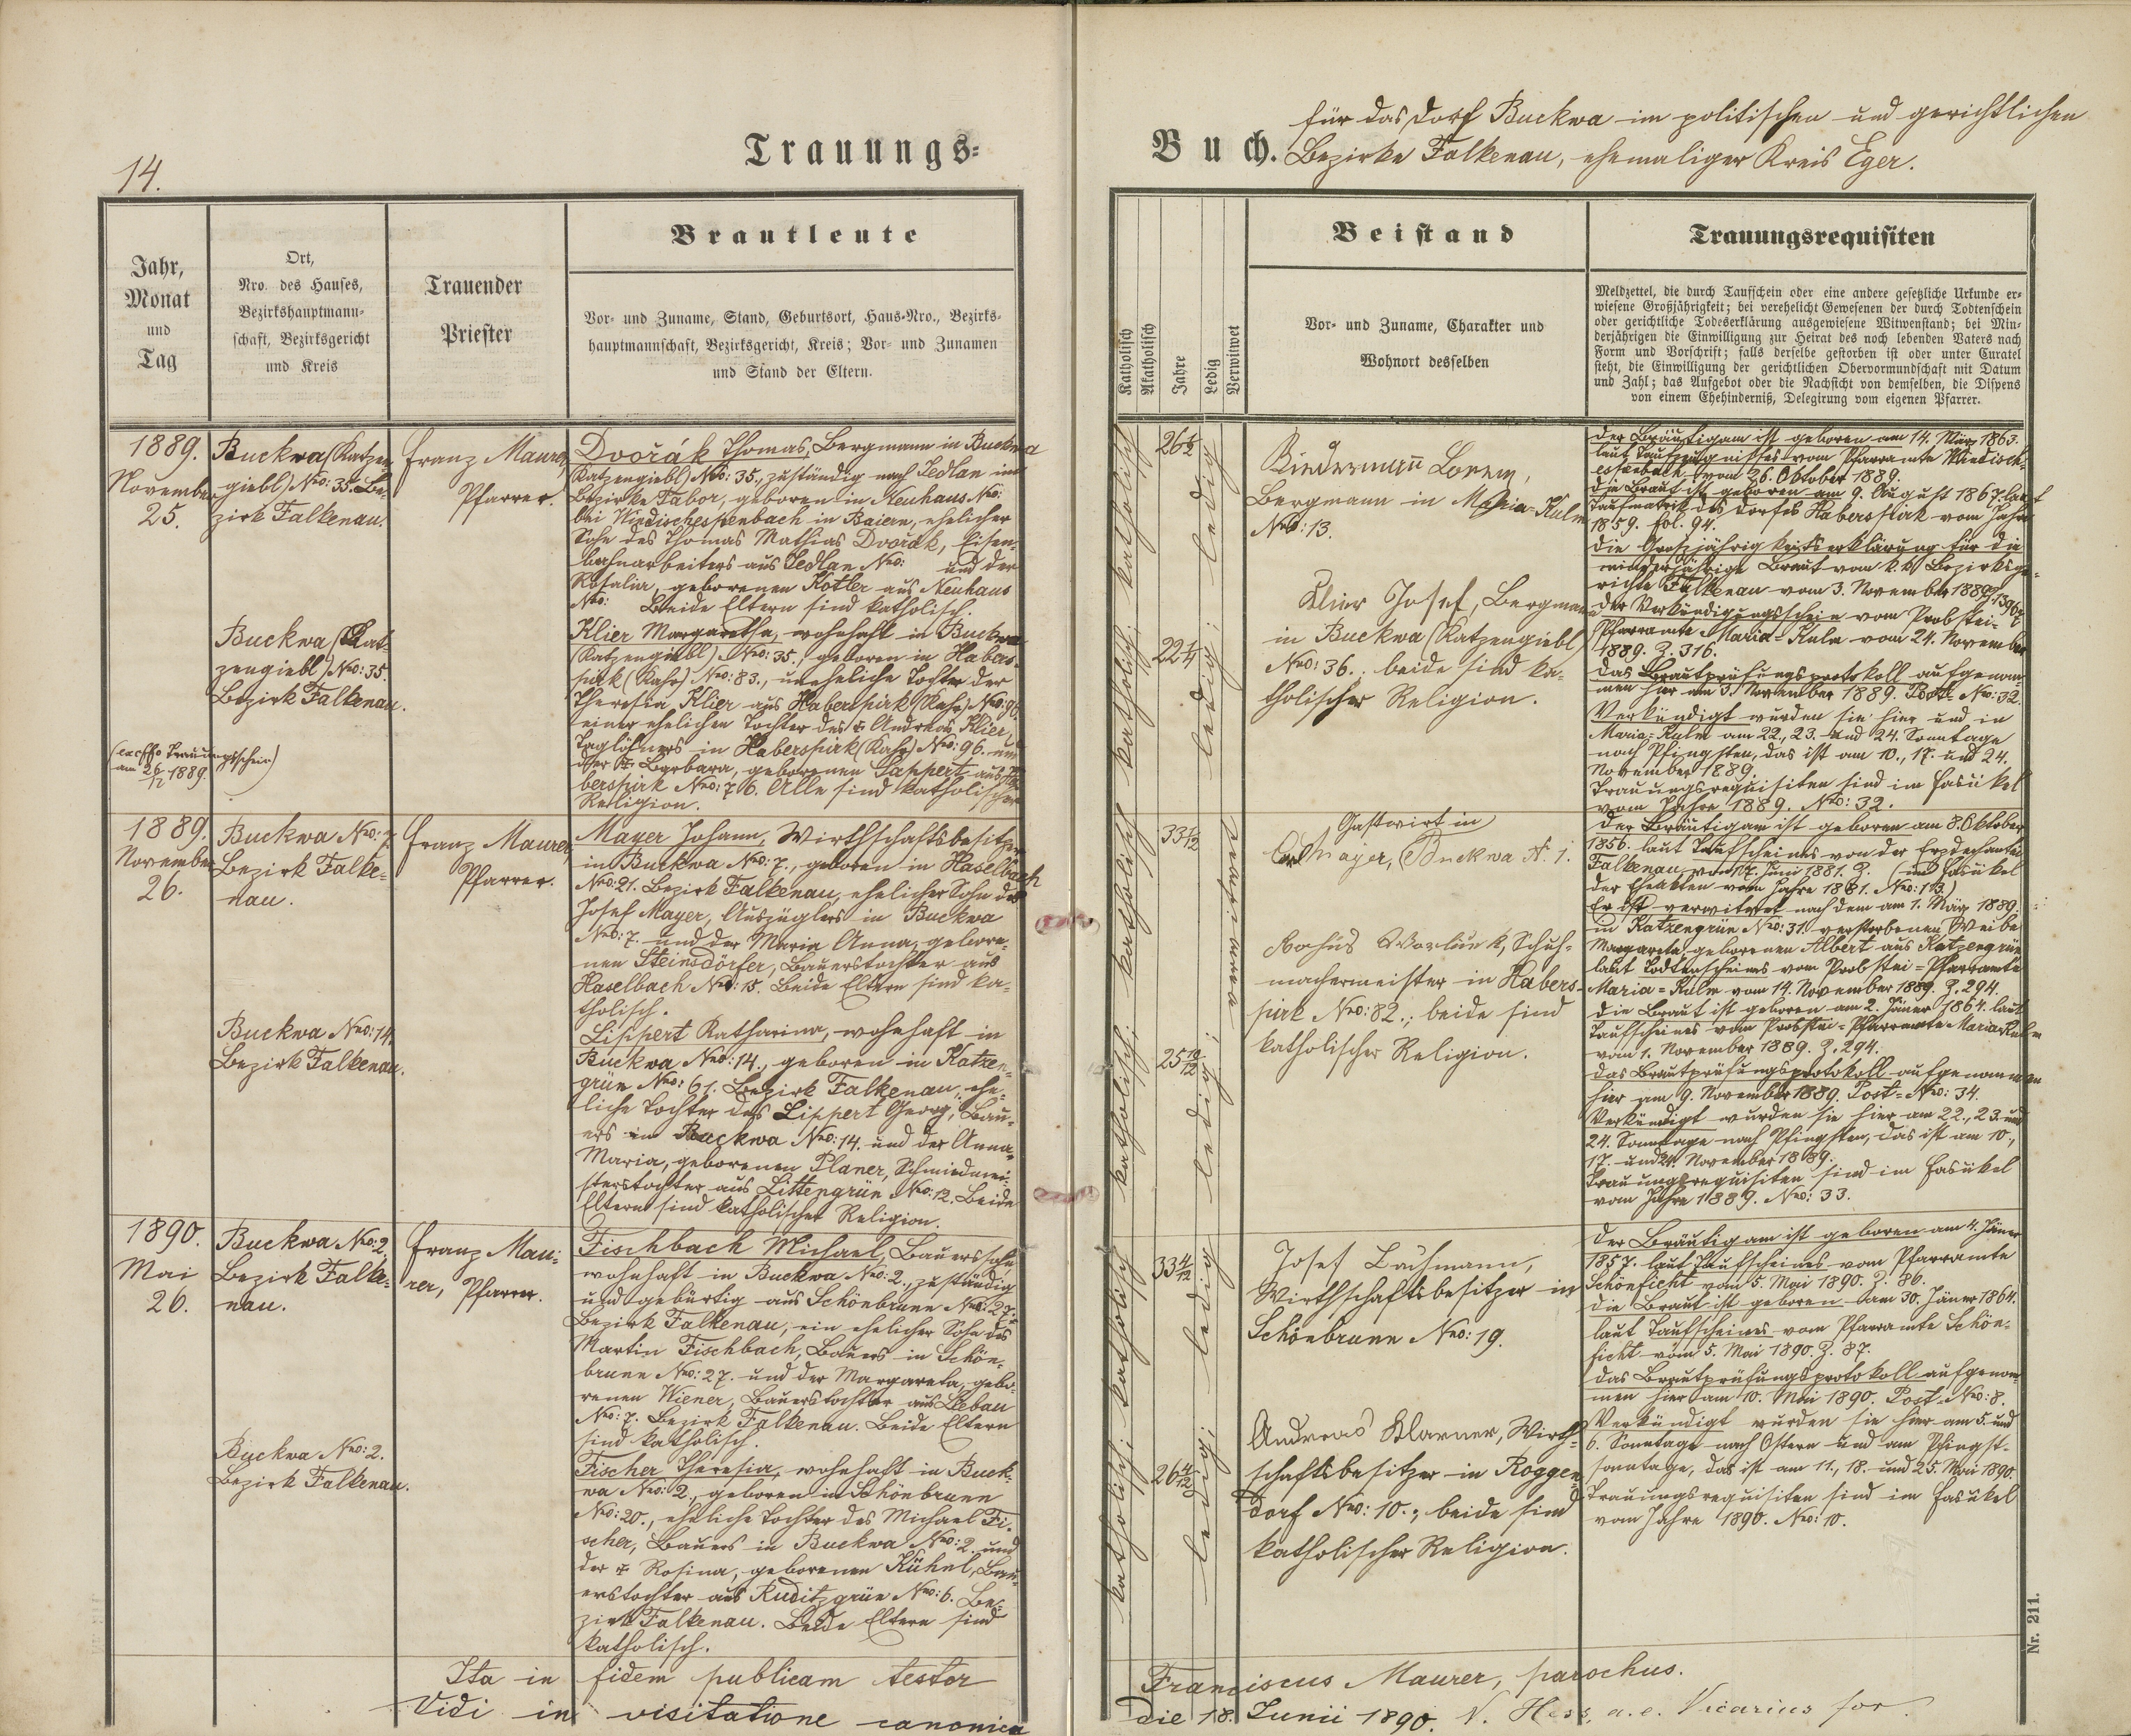 14.
Trauungs-
Buch.
für das Dorf Buckwa im politischen und gerichtlichen
Bezirke Falkenau, ehemaliger Kreis Eger.
Jahr,
Monat
und
Tag
Ort,
Nro. des Hauses,
Bezirkshauptmann-
schaft, Bezirksgericht
und Kreis
Trauender
Priester
Brautleute
Vor- und Zuname, Stand, Geburtsort, Haus-Nro., Bezirks-
hauptmannschaft, Bezirksgericht, Kreis; Vor- und Zunamen
und Stand der Eltern.
Katholisch
Akatholisch
Jahre
Ledig
Verwitwet
Beistand
Vor- und Zuname, Charakter und
Wohnort desselben
Trauungsrequisiten
Meldzettel, die durch Taufschein oder eine andere gesetzliche Urkunde er-
wiesene Großjährigkeit; bei verehelicht Gewesenen der durch Todtenschein
oder gerichtliche Todeserklärung ausgewiesene Witwenstand; bei Min-
derjährigen die Einwilligung zur Heirat des noch lebenden Vaters nach
Form und Vorschrift; falls derselbe gestorben ist oder unter Curatel
steht, die Einwilligung der gerichtlichen Obervormundschaft mit Datum
und Zahl; das Aufgebot oder die Nachsicht von demselben, die Dispens
von einem Ehehinderniß, Delegirung vom eigenen Pfarrer.
1889.
November
25.
Buckwa (Katzen
giebl) Nro: 35. Be-
zirk Falkenau.
Franz Maurer,
Pfarrer.
Dvořák Thomas, Bergmann in Buckwa
(Katzengiebl) Nro: 35., zuständig nach Sedlan im
Bezirke Tabor, geboren in Neuhaus Nro:
bei Windischeschenbach in Baiern, ehelicher
Sohn des Thomas Mathias Dvořák, Eisen-
bahnarbeiters aus Sedlan Nro: und der
Rosalia, geborenen Kotler aus Neuhaus
Nro: Beide Eltern sind katholisch.
Buckwa (Kat-
zengiebl) Nro: 35.
Bezirk Falkenau.
Klier Margaretha, wohnhaft in Buckwa
(Katzengiebl) Nro: 35., geboren in Habers-
pirk (Rahr) Nro: 83., uneheliche Tochter der
Theresia Klier aus Haberspirk (Rahr) Nro: 96.
einer ehelichen Tochter des † Andreas Klier,
Taglöhners in Haberspirk (Rahr) Nro: 96. und
der † Barbara, geborenen Lappert aus Ha-
berspirk Nro: 76. Alle sind katholischer
Religion.
Trauungsschein)
am 26/12 1889.
katholisch; katholisch
26 8/12
ledig
22 1/4
ledig;
Biedermann Lorenz,
Bergmann in Maria-Kulm
Nro: 13.
Klier Josef, Bergmann
in Buckwa (Katzengiebl)
Nro: 36.; beide sind ka-
tholischer Religion.
Der Bräutigam ist geboren am 14. März 1863.
laut Taufzeugnisses vom Pfarramte Windisch-
eschenbach vom 26. Oktober 1889.
Die Braut ist geboren am 9. August 1867. laut
Taufmatrik des Dorfes Haberspirk vom Jahre
1859. fol. 94.
Die Großjährigkeitserklärung für die
minderjährige Braut vom k. k. Bezirksge-
richte Falkenau vom 3. November 1889.
Der Verkündigungsschein vom Probstei-
Pfarramte Maria-Kulm vom 24. November
1889. Z. 316.
Das Brautprüfungsprotokoll aufgenom-
men hier am 3. November 1889. Post-Nro: 32.
Verkündigt wurden sie hier und in
Maria-Kulm am 22., 23. und 24. Sonntage
nach Pfingsten, das ist am 10., 17. und 24.
November 1889.
Trauungsrequisiten sind im Fasükel
vom Jahre 1889. Nro: 32.
1889.
November
26.
Buckwa Nro: 7.
Bezirk Falke-
nau.
Franz Maurer,
Pfarrer.
Mayer Johann, Wirthschaftsbesitzer
in Buckwa Nro: 7., geboren in Haselbach
Nro: 21. Bezirk Falkenau, ehelicher Sohn des
Josef Mayer, Auszüglers in Buckwa
Nro: 7. und der Maria Anna, gebore-
nen Steinsdörfer, Bauerstochter aus
Haselbach Nro: 15. Beide Eltern sind ka-
tholisch.
Buckwa Nro: 14.
Bezirk Falkenau.
Lippert Katharina, wohnhaft in
Buckwa Nro: 14., geboren in Katzen-
grün Nro: 61. Bezirk Falkenau, ehe-
liche Tochter des Lippert Georg, Bau-
ers in Buckwa Nro: 14. und der Anna
Maria, geborenen Planer, Schmiedmei-
sterstochter aus Littengrün Nro: 12. Beide
Eltern sind katholischer Religion.
katholisch; katholisch
33 1/12
verwitwet
25 10/12
ledig;
Gastwirt in
Carl Mayer, Buckwa N. 1.
Wozlurek, Schuh-
machermeister in Habers-
pirk Nro: 82.; beide sind
katholischer Religion.
Der Bräutigam ist geboren am 8. Oktober
1856. laut Taufscheines von der Erzdechantei
Falkenau vom 17. Juni 1881. Z. (im Fasükel
der Eheakten vom Jahre 1881. Nro: 113.)
Er ist verwitwet nach dem am 1. März 1889.
in Katzengrün Nro: 31. verstorbenen Weibe
Margareta geborenen Albert aus Katzengrün
laut Todtenscheines vom Probstei-Pfarramte
Maria-Kulm vom 14. November 1889. Z. 294.
Die Braut ist geboren am 2. Jäner 1864. laut
Taufscheines vom Probstei-Pfarramte Maria-Kulm
vom 1. November 1889. Z. 294.
Das Brautprüfungsprotokoll aufgenommen
hier am 9. November 1889. Post-Nro: 34.
Verkündigt wurden sie hier am 22., 23. und
24. Sonntage nach Pfingsten, das ist am 10.,
17. und 24. November 1889.
Trauungsrequisiten sind im Fasükel
vom Jahre 1889. Nro: 33.
1890.
Mai
26.
Buckwa Nro: 2.
Bezirk Falke-
nau.
Franz Mau-
rer, Pfarrer.
Fischbach Michael, Bauerssohn
wohnhaft in Buckwa Nro: 2., zuständig
und gebürtig aus Schönbrunn Nro: 27.
Bezirk Falkenau, ein ehelicher Sohn des
Martin Fischbach, Bauers in Schön-
brunn Nro: 27. und der Margareta, gebo-
renen Wiener, Bauerstochter aus Liebau
Nro: 7. Bezirk Falkenau. Beide Eltern
sind katholisch.
Buckwa Nro: 2.
Bezirk Falkenau.
Fischer Theresia, wohnhaft in Buck-
wa Nro: 2., geboren in Schönbrunn
Nro: 20., eheliche Tochter des Michael Fi-
scher, Bauers in Buckwa Nro: 2. und
der † Rosina, geborenen Kühnl, Bau-
erstochter aus Ruditzgrün Nro: 6. Be-
zirk Falkenau. Beide Eltern sind
katholisch.
katholisch; katholisch
33 4/12
ledig
26 4/12
ledig;
Josef Lochmann,
Wirthschaftsbesitzer in
Schönbrunn Nro: 19.
Andreas Klarner, Wirth-
schaftsbesitzer in Roggen-
dorf Nro: 10.; beide sind
katholischer Religion.
Der Bräutigam ist geboren am 4. Jäner
1857. laut Taufscheines vom Pfarramte
Schönficht vom 5. Mai 1890. Z. 86.
Die Braut ist geboren am 30. Jäner 1864.
laut Taufscheines vom Pfarramte Schön-
ficht vom 5. Mai 1890. Z. 87.
Das Brautprüfungsprotokoll aufgenom-
men hier am 10. Mai 1890. Post-Nro: 8.
Verkündigt wurden sie hier am 5. und
6. Sonntage nach Ostern und am Pfingst-
sonntage, das ist am 11., 18. und 25. Mai 1890.
Trauungsrequisiten sind im Fasükel
vom Jahre 1890. Nro: 10.
Nr. 211.
Ita in fidem publicam testor Franciscus Maurer, parochus.
Vidi in visitatione canonica die 18. Junii 1890. N. Hess, a. e. Vicarius for.